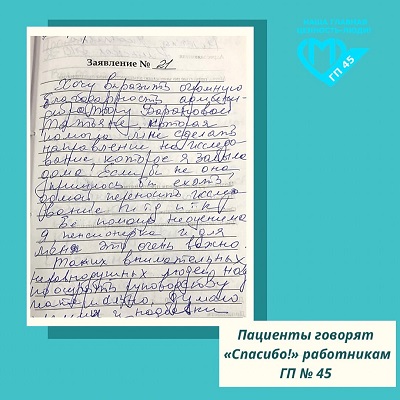 НАША ГЛАВНАЯ
ЦЕННОСТЬ-ЛЮДИ!
ГП 45
Заявление № 21
Хочу выразить огромную
благодарность админи-
стратору
Татьяне, которая
помогла мне сделать
направление на исследо-
вание, которое я забыла
дома. Если б не она
пришлось бы ехать
домой, переносить иссле-
дование и т.д. и т.п.
Ее помощь неоценима
Я пенсионерка и для
меня это очень важно.
Таких внимательных
неравнодушных людей надо
поощрять руководству
Пациенты говорят
«Спасибо!» работникам
ГП № 45